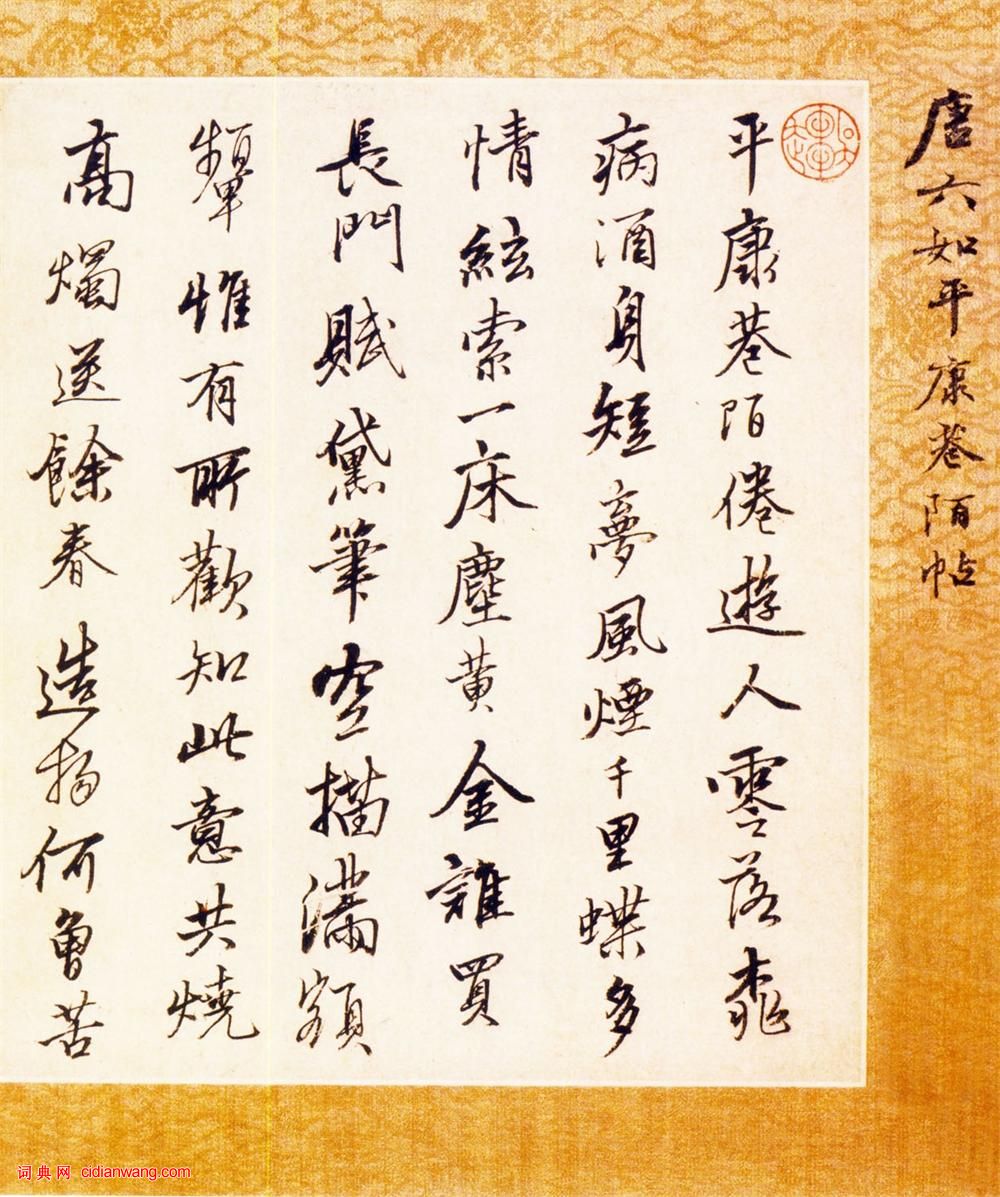 唐六如平康巷陌帖
平康巷陌倦遊人零落桃
病酒身短夢風煙千里蝶多
情絃索一床塵黃金誰買
長門賦黛筆空描滿額
顰惟有所歡知此意共燒
高燭送餘春造物何曾苦
词典网 cidianwang.com